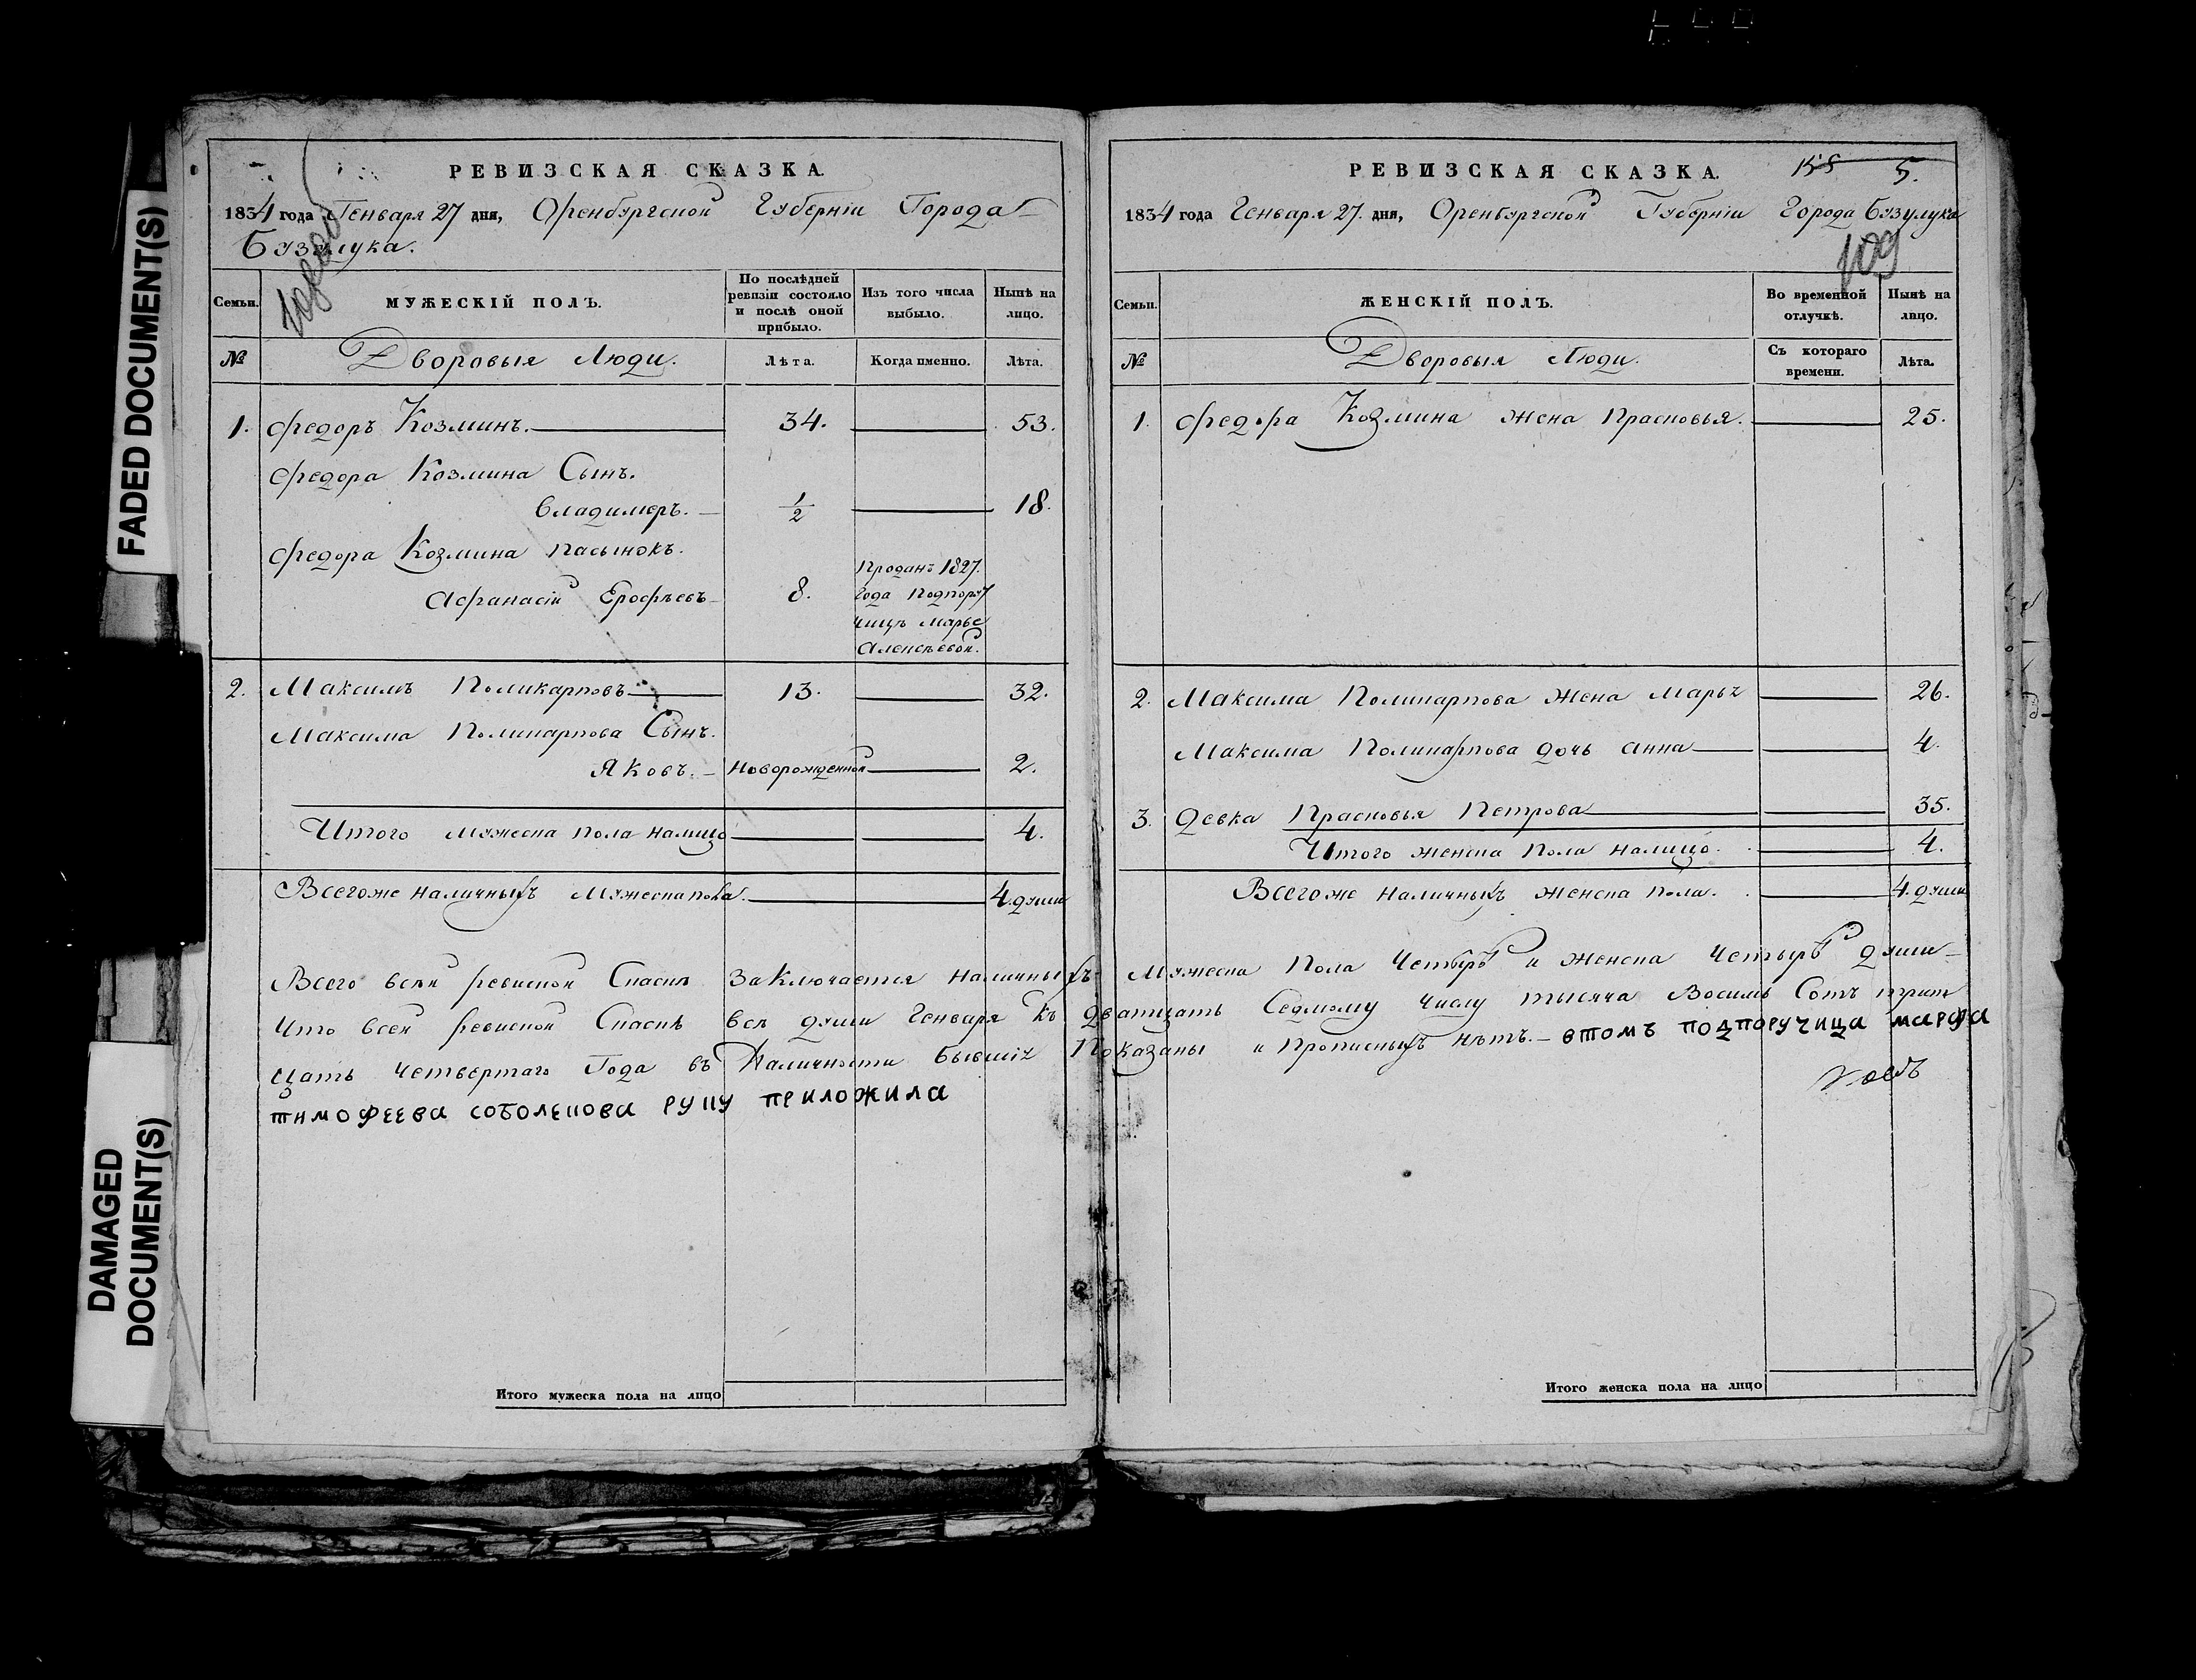 FADED DOCUMENT(S)
DAMAGED DOCUMENT(S)
РЕВИЗСКАЯ СКАЗКА.
1834 года Генваря 27 дня, Оренбургской Губерніи Города
Бузулука.
Семьи.
МУЖЕСКІЙ ПОЛЪ.
По послѣдней ревизіи состояло и послѣ оной прибыло.
Изъ того числа выбыло.
Нынѣ на лицо.
№
Дворовыя Люди.
Лѣта.
Когда именно.
Лѣта.
1. Федоръ Козминъ. 34. 53.
Федора Козмина Сынъ.
Владимеръ. 1/2 18.
Федора Козмина пасынокъ.
Афанасій Ерофѣевъ 8. Проданъ 1827.
года Подпору
чицѣ Марье
Алексѣевой.
2. Максимъ Поликарповъ 13. 32.
Максима Поликарпова Сынъ.
Яковъ. Новорожденной 2.
Итого мужеска пола налицо 4.
Всегоже наличныхъ мужеска пола. 4. души
РЕВИЗСКАЯ СКАЗКА.
5.
1834 года Генваря 27. дня, Оренбургской Губерніи Города Бузулука
109
Семьи.
ЖЕНСКІЙ ПОЛЪ.
Во временной отлучкѣ.
Нынѣ на лицо.
№
Дворовыя Люди.
Съ котораго времени.
Лѣта.
1. Федора Козмина жена Прасковья. 25.
2. Максима Поликарпова жена Марья 26.
Максима Поликарпова дочь Анна 4.
3. Девка Прасковья Петрова 35.
Итого женска пола налицо. 4.
Всегоже наличныхъ женска пола. 4. души
Всего всей ревиской Сказкѣ заключается наличныхъ мужеска пола Четырѣ и женска Четырѣ души
Что всей ревиской Сказкѣ все души Генваря къ дватцать Седмому числу тысяча Восимь Сотъ трит
цать четвертаго Года въ Наличности бывшіе Показаны и прописныхъ нѣтъ. — втомъ подпоручица марфа
тимофеева соболекова руку приложила
Итого мужеска пола на лицо
Итого женска пола на лицо